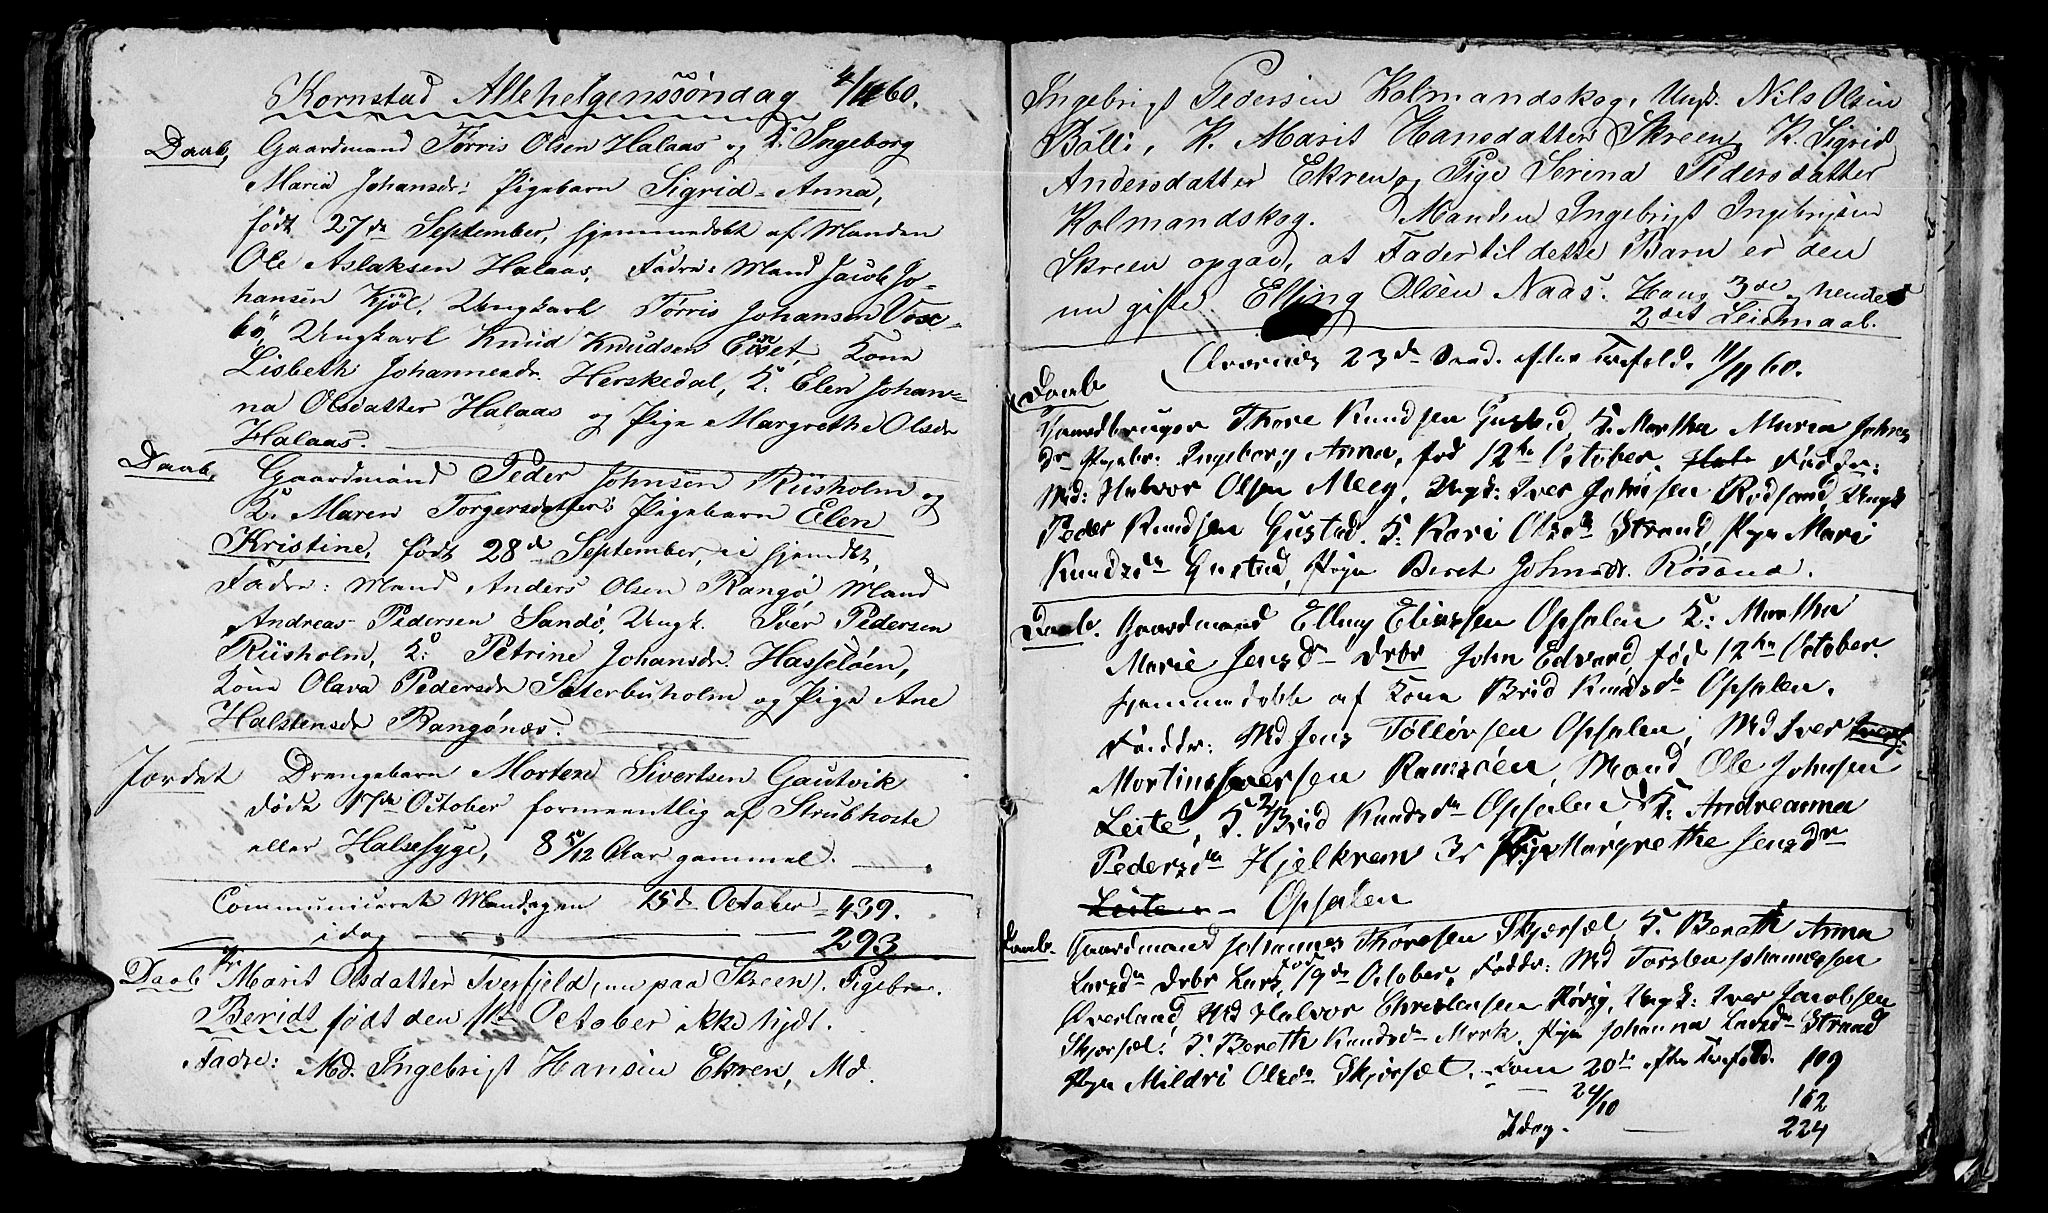 Kornstad Allehelgenssöndag 4/11 60.
Daab, Gaardmand Tørris Olsen Halaas og K. Ingeborg
Maria Johansdr: Pigebarn Sigrid-Anna,
født 27de September, hjemmedøbt af Manden
Ole Aslaksen Halaas. Fadre: Mand Jacob Jo-
hansen Kjöl, Ungkarl Tørris Johansen Vose-
bö, Ungkarl Knud Knudsen Eiset, Kone
Lisbeth Johannesdr. Herskedal, K. Elen Johan-
na Olsdatter Halaas og Pige Margrethe Olsdr
Halaas.
Daab, Gaardmand Peder Johnsen Riisholm og
K. Maren Torgersdatter: Pigebarn Elen
Kristine, födt 28de September, ei hjemdbt,
Fadre: Mand Anders Olsen Rangø Mand
Andreas Pedersen Sandö, Ungk. Iver Pedersen
Riisholm, K. Petrine Johansdr. Hasseløen,
Kone Olava Pedersdr Säterbuholm og Pige Ane
Halstensdr Rangönæs.
Jordet Drengebarn Morten Sivertsen Gautvik
døde 17de October formeentlig af Strubhoste
eller Halsesyge, 8 5/12 Aar gammel.
Communiceret Mandagen 15de October 439.
idag 293
Daab Fr Marit Olsdatter Tverfjeld, (nu paa Skreen). Pigebn.
Beridt født den 1ste October ikke hjdt.
Fadre: Md. Ingebrigt Hansen Ekren, Md.
Ingebrigt Pedersen Kolmandskog, Ungk. Nils Olsen
Bölli, K. Marit Hansdatter Skreen, K. Sigrid
Andersdatter Ekren og Pige Serina Pedersdatter
Kolmandskog. Manden Ingebrigt Ingebrigsen
Skreen opgav, at Fader til dette Barn er den
nu gifte Elling Olsen Naas. Hans 3die, hendes
2det Leiermaal.
23de Sønd. efter Trefold. 11/11 60.
Daab
Gaardbruger Thore Knudsen Gustad K. Martha Maria Johns
dr Pigebr: Ingeborg Anna, fød 12te October. Faddr:
Md: Halvor Olsen Meeg, Ungk: Iver Johnsen Rodsand, Ungk
Peder Knudsen Gustad. K. Kari Olsdr Strand, Pige Mari
Knudsdr Gustad, Pige Beret Johnsdr. Rösand.
Daab. Gaardmand Elling Eliassen Opsalen K: Martha
Marie Jensdr Drbr John Edvard, fød 12te October.
hjemmedøbt af Kone Brid Knudsdr Opsalen.
Faddr: Md Jens Tölløvsen Opsalen, Md Iver
Mortins Iversen Ramsöen, Mand Ole Johnsen
Leite, K. Brid Knudsdr Opsalen, K. Andreanna
Pedersdr Hjelkrem Pige Margrethe Jensdr
Leite Opsalen
Daab. Gaardmand Johannes Thoresen Skjørsæt K. Bereth Anna
Larsdr Drbr Lars, fød 19de October, Faddr: Md Torsten Johannessen
Øverland, Md Halvor Christensen Röeig, Ungk: Iver Jacobsen
Skjørsæt: K. Bereth Knudsdr Mork, Pige Johanna Larsdr Strand
Pige Mildri Olsdr Skjørsæt. Kom 20de efter Trefold. 109
24/10 162
Idag. 224